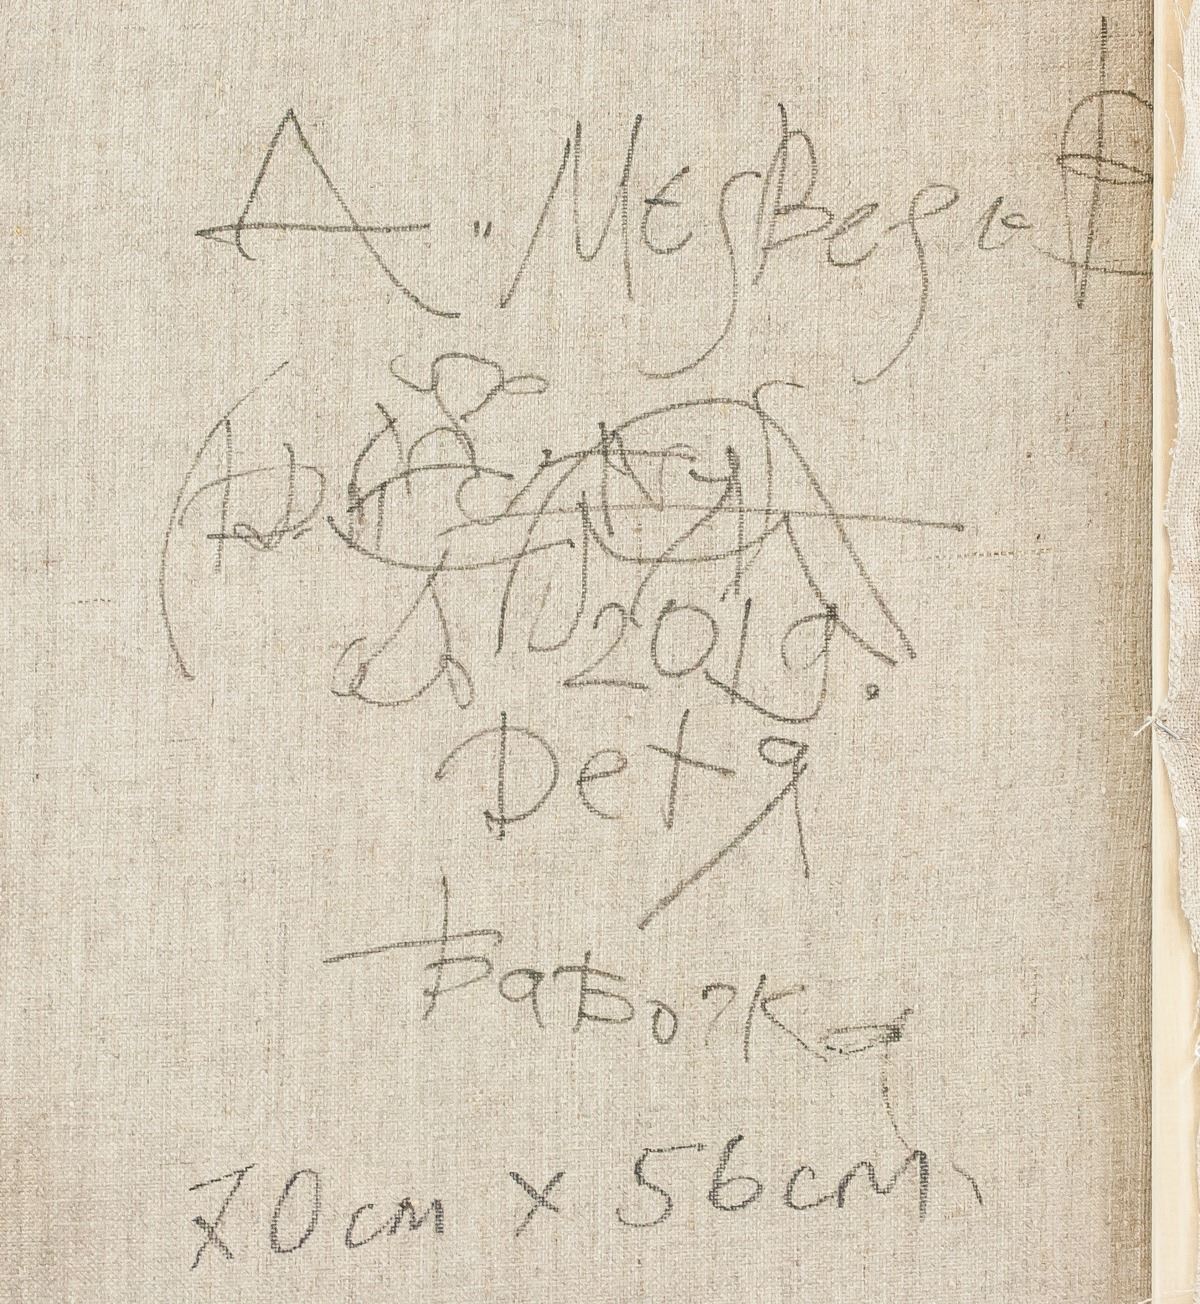 А. Медведев
2019.
Детя
бабочка
70см х 56см